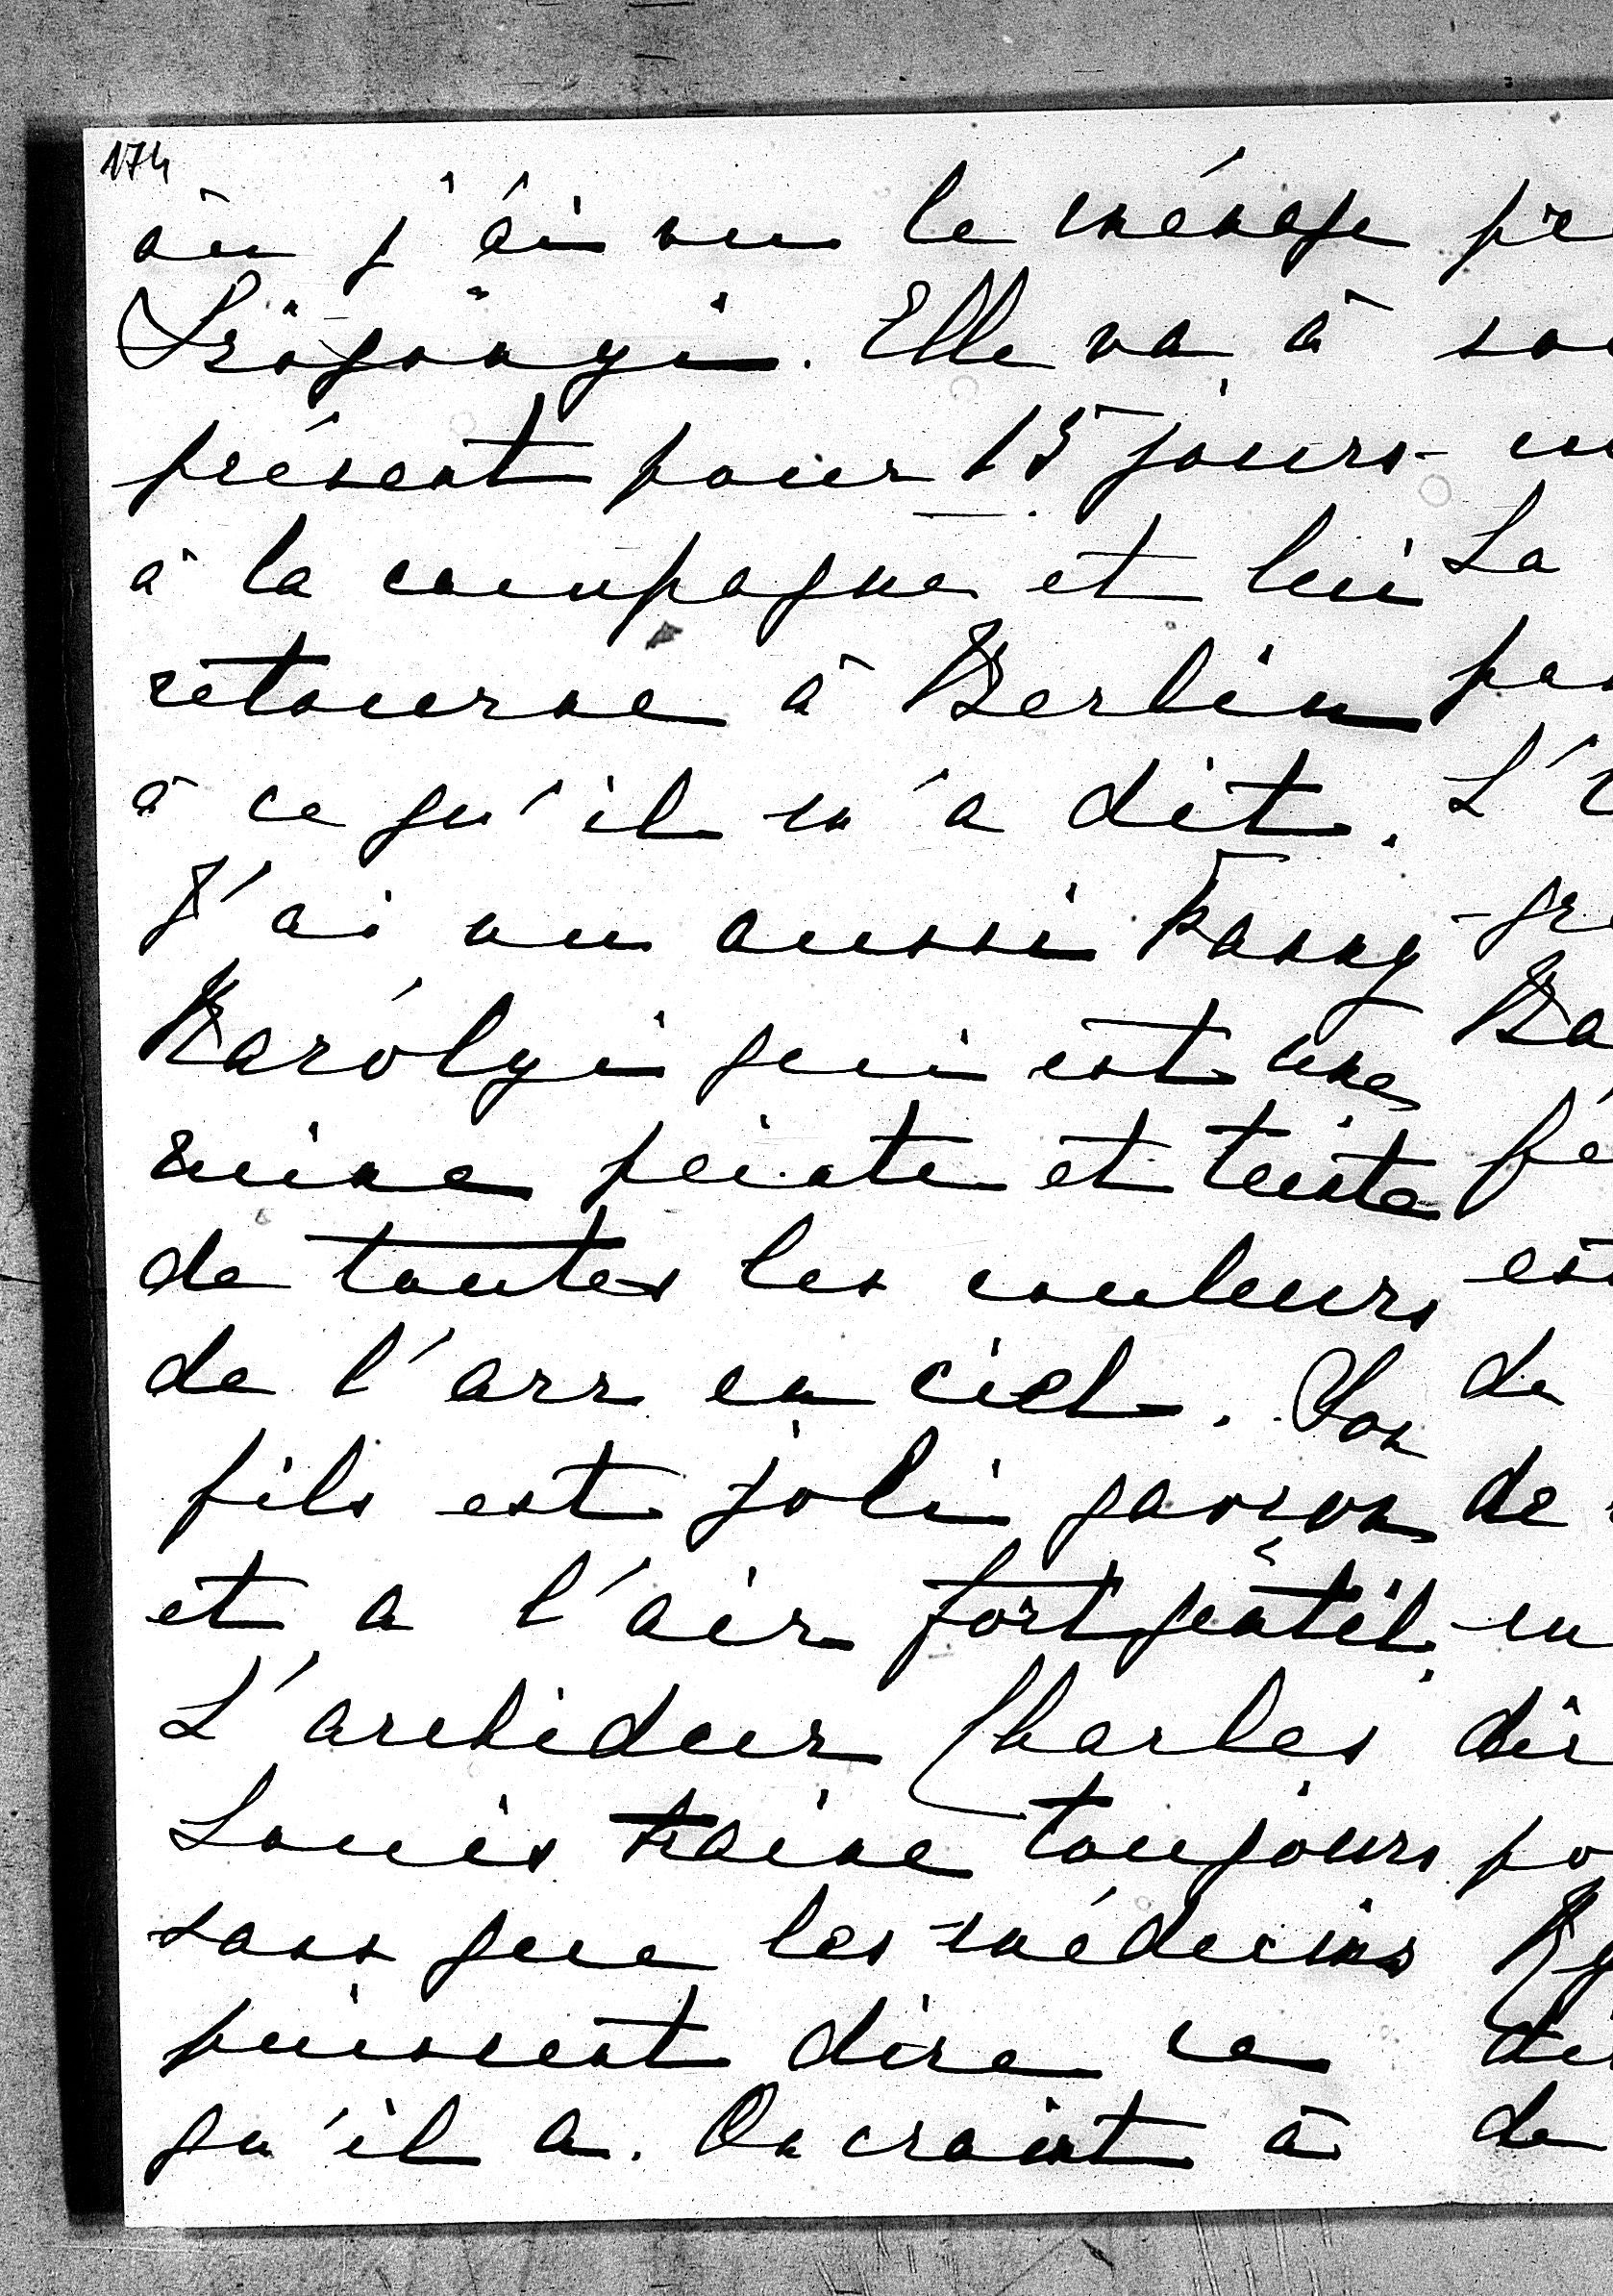 174
où j'ai vu le ménage
Szögyényi. Elle va à
présent pour 15 jours
à la campagne et lui
retourne à Berlin
à ce qu'il m'a dit.
J'ai vu aussi Fanny
Károlyi qui est une
ruine peinte et teinte
de toutes les couleurs
de l'arc en ciel. Son
fils est joli garçon
et a l'air fort gentil.
L'archiduc Charles
Louis traine toujours
sans que les médecins
puissent dire ce
qu'il a. On craint à
La
L'
de
de
de